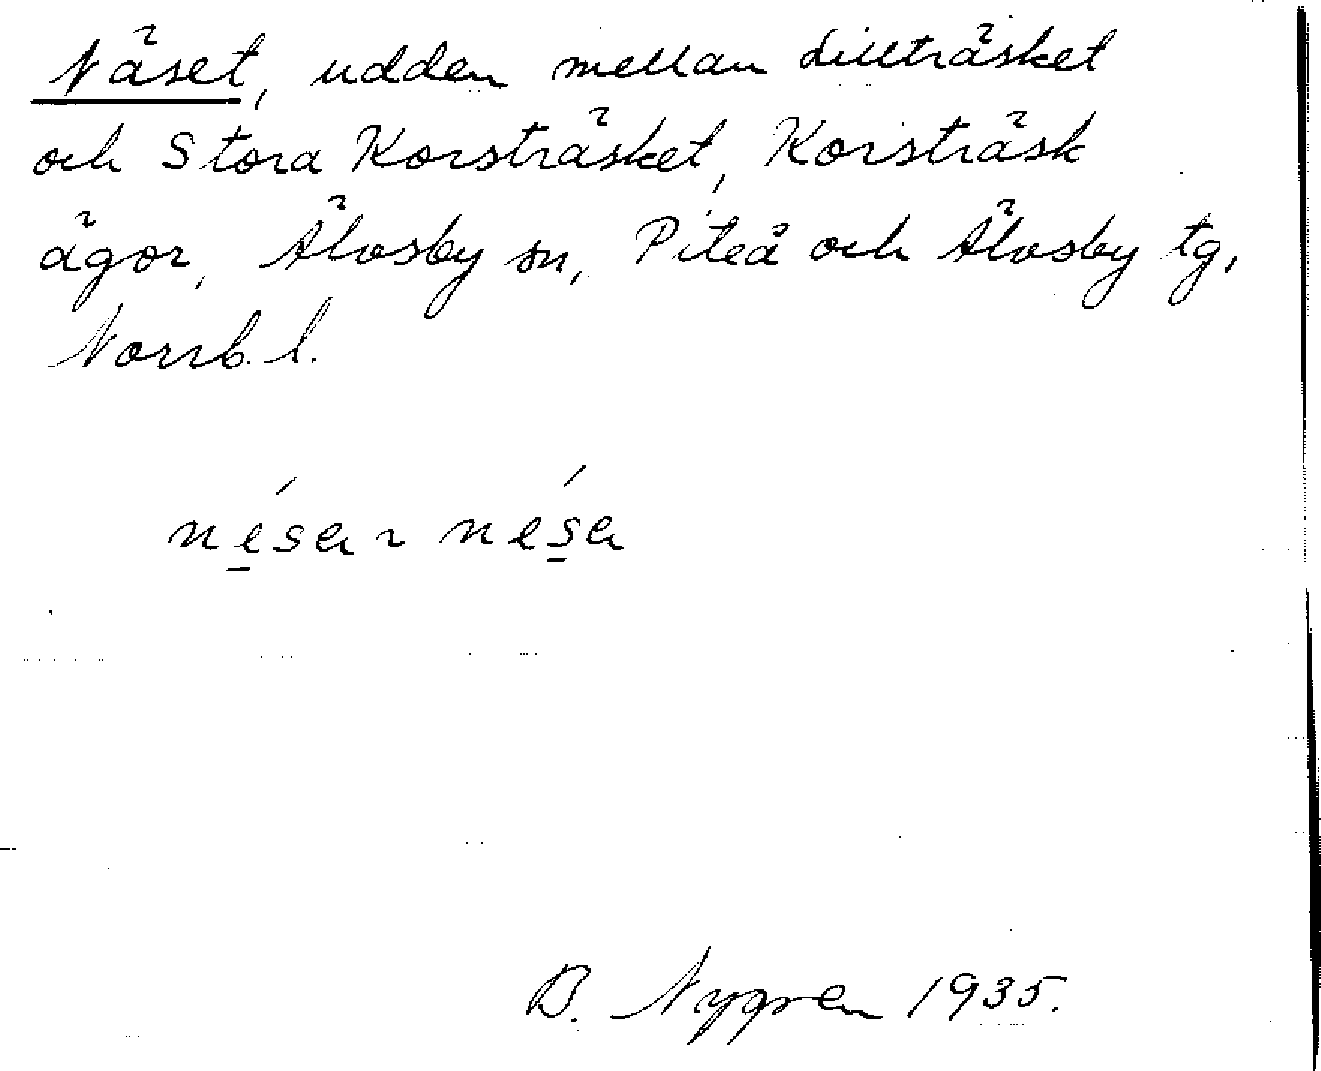 Näset, udden mellan Lillträsket
och Stora Korsträsket, Korsträsk
ägor, Älvsby sn, Piteå och Älvsby tg,
Norrb. l.
nésa ~ nésa
B. Nygren 1935.